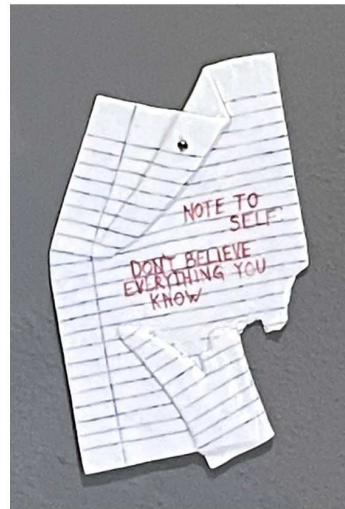 NOTE TO
SELF:
DONT BELIEVE
EVERYTHING YOU
KNOW